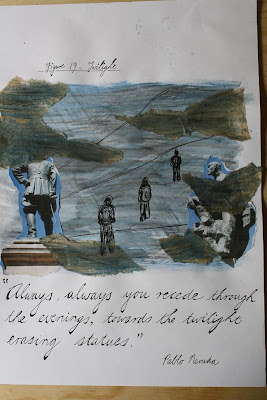 Figure 19 - Twilight
"Always, always you recede through
the evenings, towards the twilight
erasing statues."
Pablo Neruda